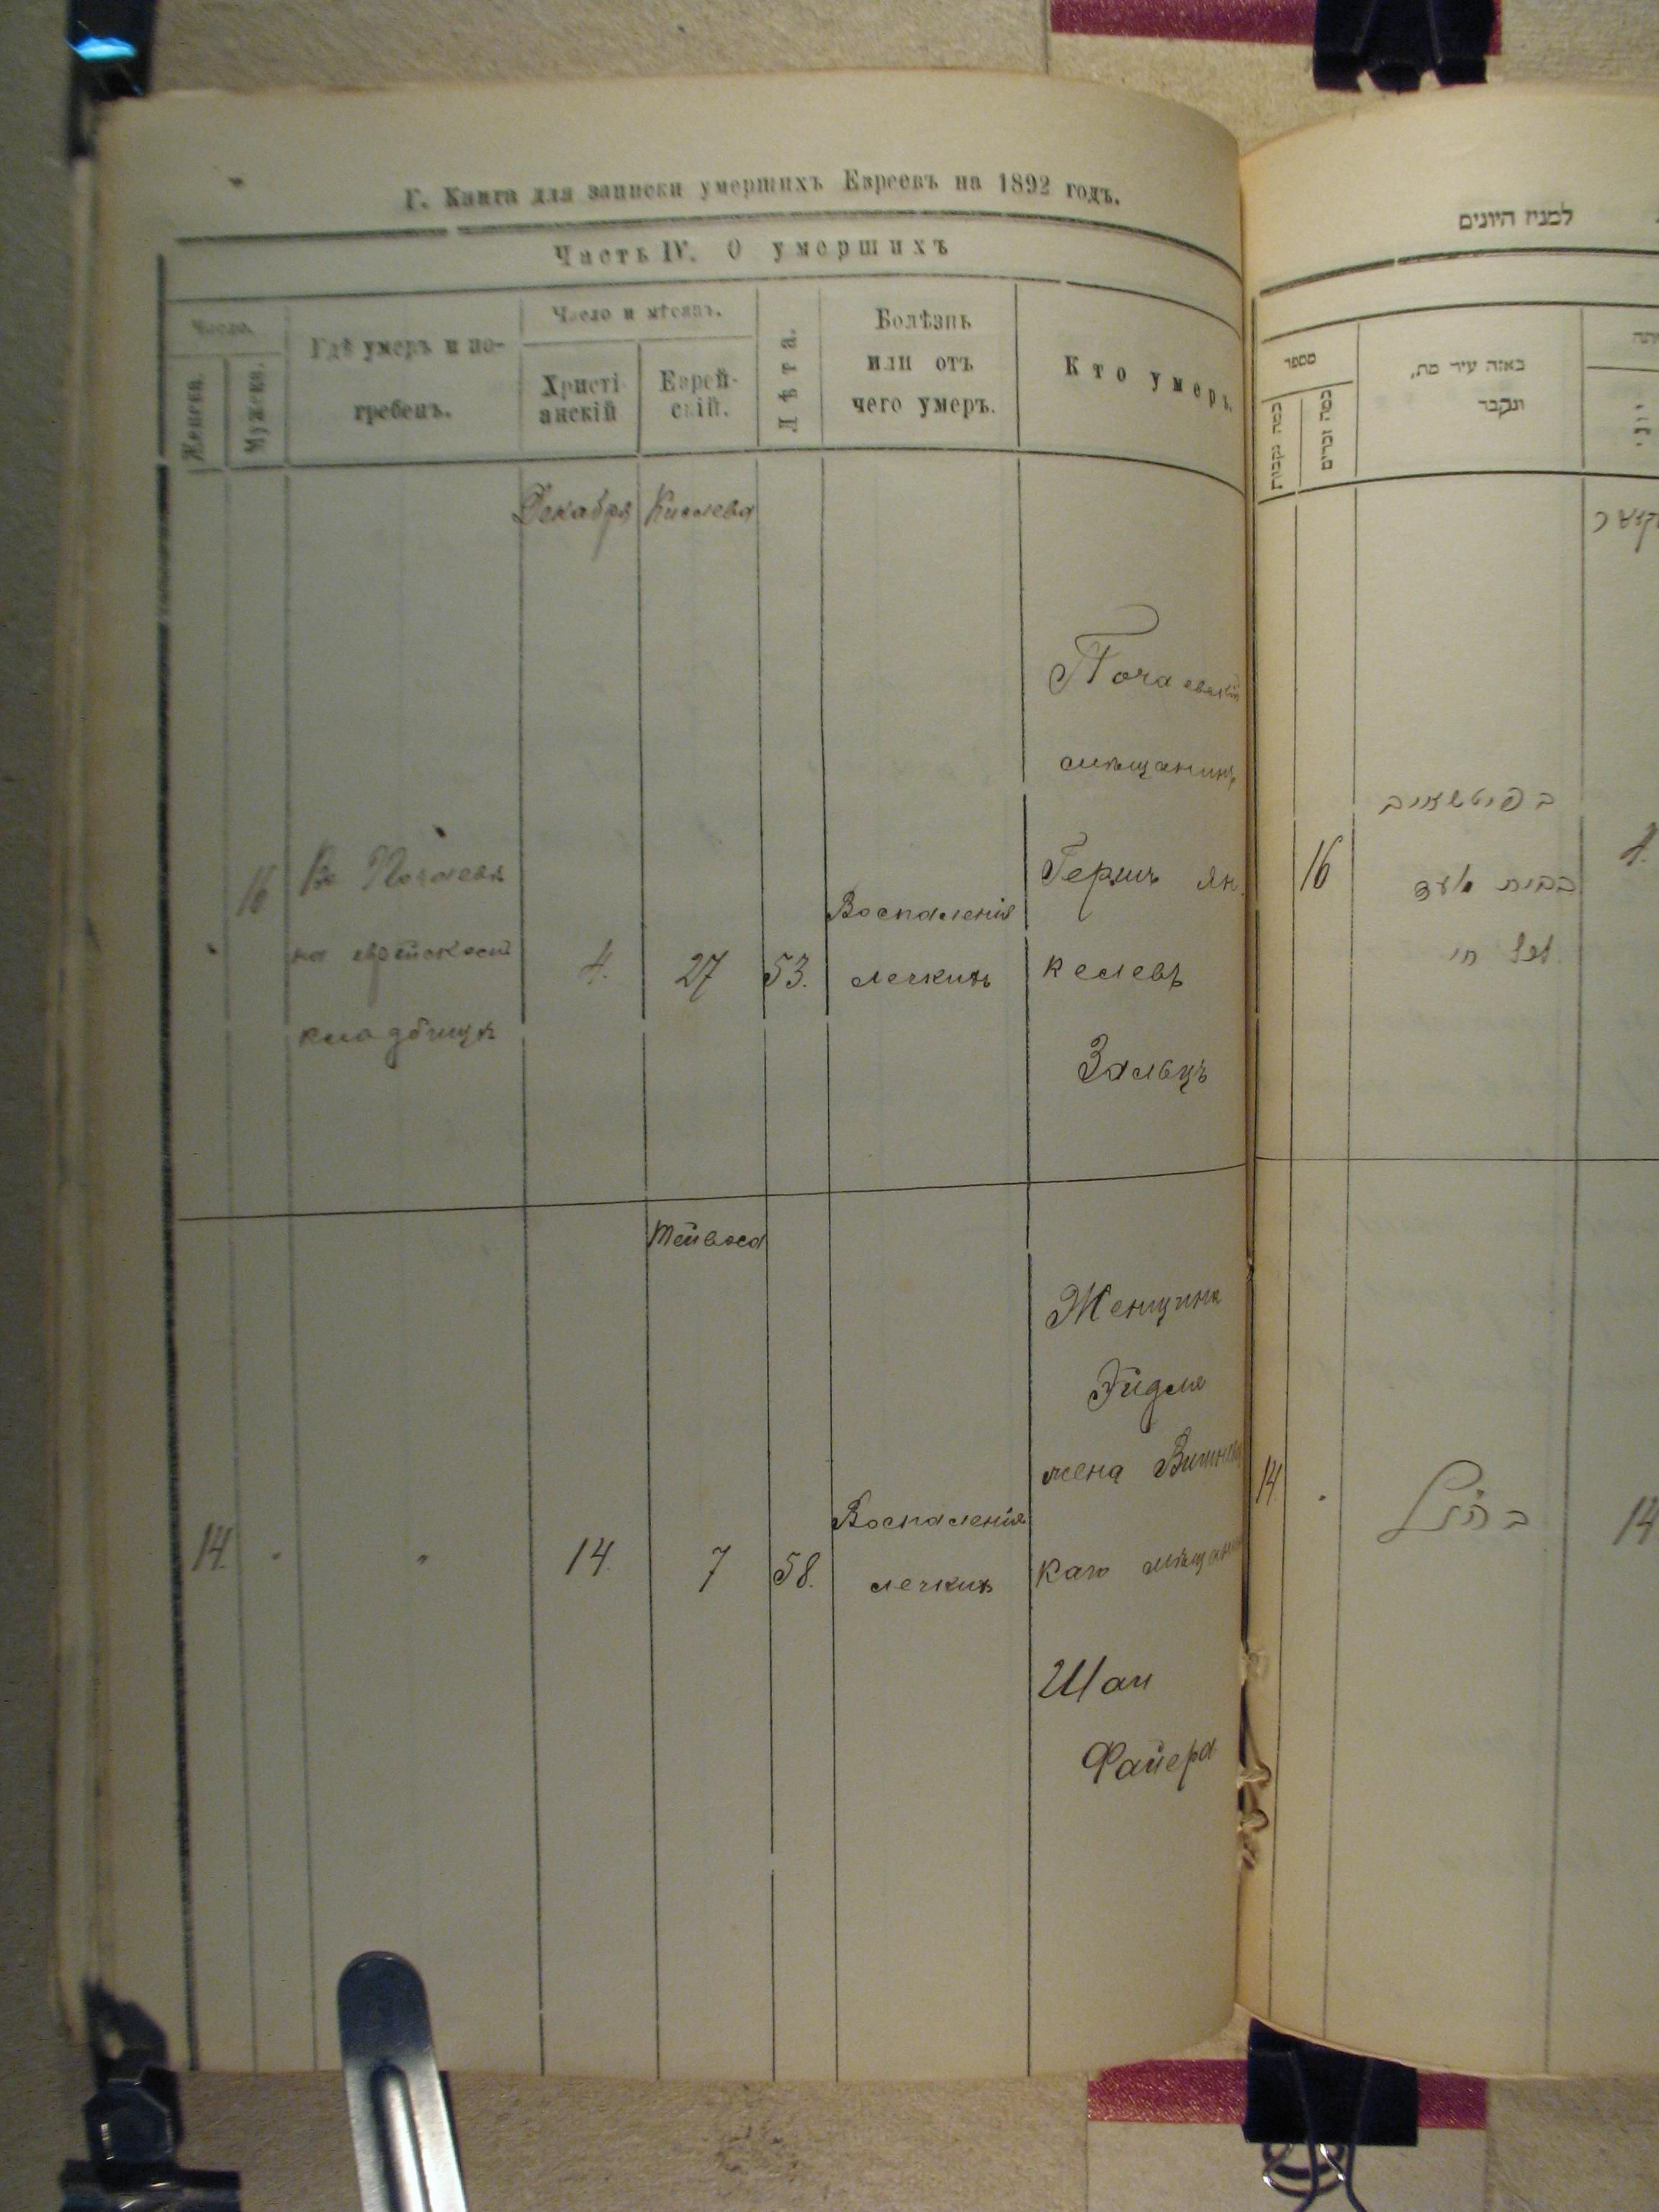 Г. Книга для записки умершихъ Евреевъ на 1892 годъ.
Часть IV. О умершихъ
Число.
Женска.
Мужеска.
Гдѣ умеръ и по-
гребенъ.
Число и мѣсяцъ.
Христі-
анскій
Еврей-
скій.
Лѣта.
Болѣзнь
или отъ
чего умеръ.
Кто умеръ.
Декабря Кислева
16
Въ Почаевѣ
на еврейскомъ
кладбищѣ
4.
27
53.
Воспаленія
легкихъ
Почаевскій
мѣщанинъ
Гершъ Ян
келевъ
Зальцъ
Тейвеса
14.
"
"
14.
7
58.
Воспаленія
легкихъ
Женщина
Эйдля
жена Вишнев
каго мѣщанина
Шаи
Файера
למניז היונים
מספר
כמה נקבות
כמה זכרים
באזה עיר מת,
ונקבר
יוני
16
4.
14.
14